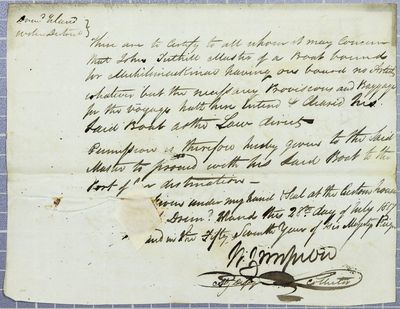 Drum.d Island
These are to Certify to all whom it may Concern
that John Tuthill Master of a Boat bound
for Michilimackinac having on board no Articles
whatever but the necessary Provisions and Baggage
for the Voyage hath here Entered & Cleared his
Said Boat as the Law directs
Permission is therefore hereby given to the said
Master to proceed with his Said Boat to the
Port of destination
Given under my hand & Seal at the Custom house
Drum.d Island this 28th day of July 1817
and in the Fifty Seventh Year of His Majesty Reign
W Simpson
Collector